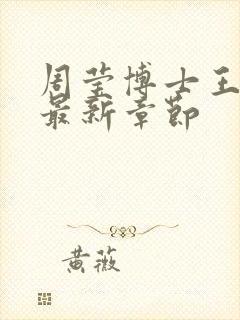 周莹博士王
最新章节
黄薇